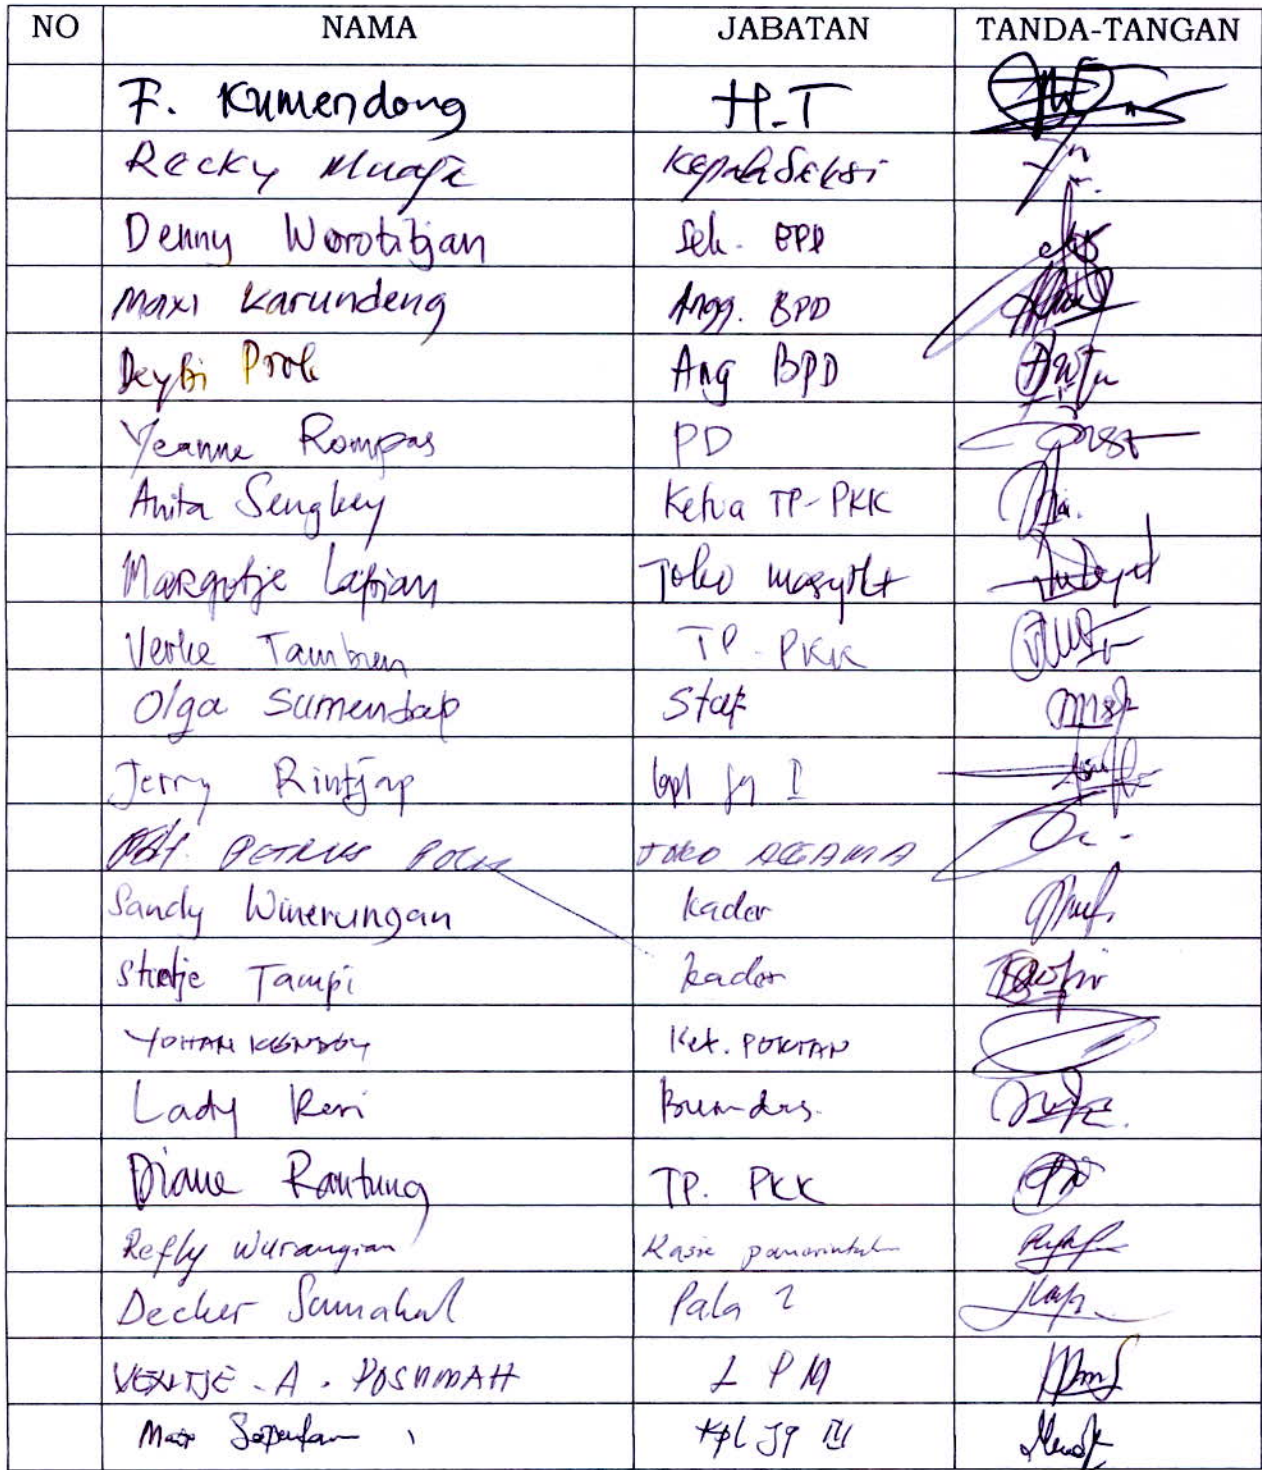 NO NAMA JABATAN TANDA-TANGAN
F. Kumendong H.T
Recky Muaja Kepala Seksi
Denny Worotitjan Sek. BPD
Maxi Karundeng Angg. BPD
Deybi Prok Ang BPD
Yeanne Rompas PD
Anita Sengkey Ketua TP-PKK
Margotje Lapian Toko
Verke TP. PKK
Olga Sumendap Staf
Jerry Rintjap
PETRUS TOKO AGAMA
Sandy Winerungan Kader
Tampi Kader
YOHAN Ket. POKTAN
Lady Bumdes.
Diane Rantung TP. PKK
Refly Wurangian Kasie
Decker Sumakul Pala 2
VENTJE . A . POSUMAH L P M
Kpl Jg III